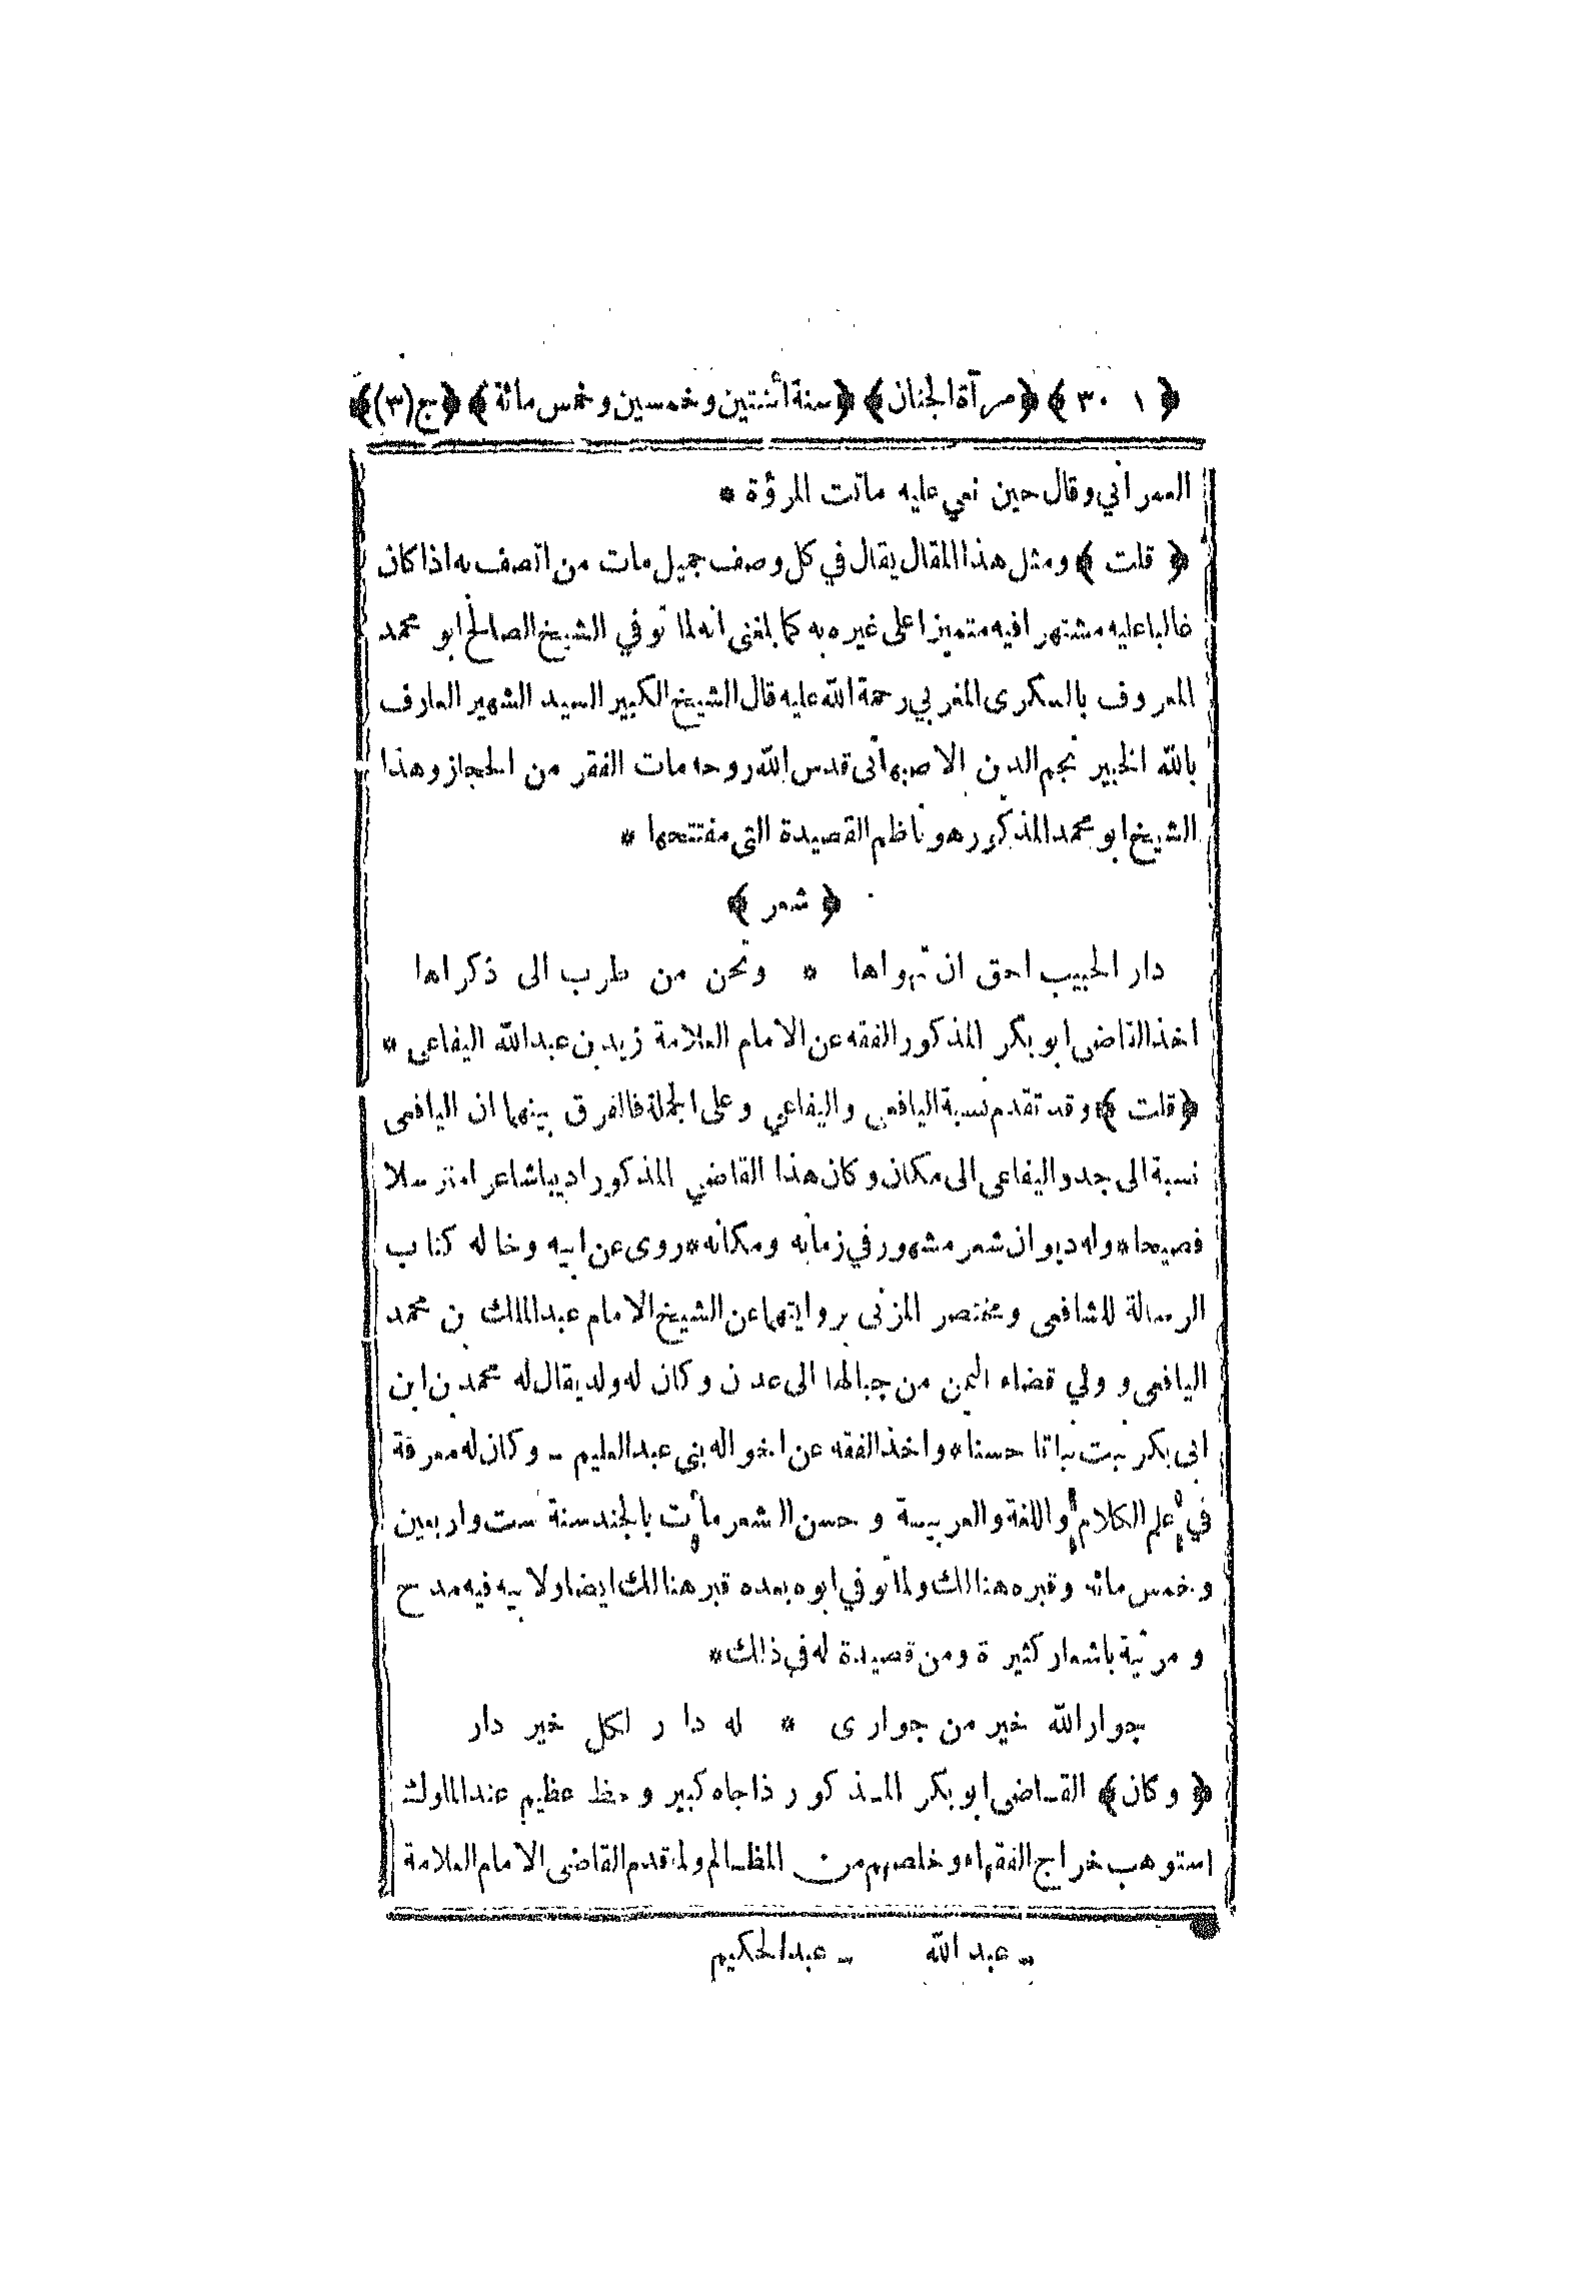 ﴿ ٣٠١ ﴾ ﴿ مرآة الجنان ﴾ ﴿ سنة اثنتين وخمسين وخمس مائة ﴾ ﴿ ج (٣) ﴾
العمراني وقال حين نعي عليه ماتت المرؤة *
﴿ قلت ﴾ ومثل هذا المقال يقال في كل وصف جميل مات من اتصف به اذا كان
غالبا عليه مشتهرا فيه متميزا على غيره به كما بلغنى انه لما توفي الشيخ الصالح ابو محمد
المعروف بالسكرى المغربي رحمة الله عليه قال الشيخ الكبير السيد الشهير العارف
بالله الخبير نجم الدين الاصبهانى قدس الله روحه مات الفقر من الحجاز وهذا
الشيخ ابو محمد المذكور هو ناظم القصيدة التى مفتتحها *
﴿ شعر ﴾
دار الحبيب احق ان تهواها * ونحن من طرب الى ذكراها
اخذ القاضى ابو بكر المذكور الفقه عن الامام العلامة زيد بن عبد الله اليفاعى *
﴿ قلت ﴾ وقد تقدم نسبة اليافعى واليفاعي وعلى الجملة فالفرق بينهما ان اليافعى
نسبة الى جد واليفاعى الى مكان وكان هذا القاضي المذكور اديبا شاعرا مترسلا
فصيحا * وله ديوان شعر مشهور في زمانه ومكانه * روى عن ابيه وخاله كتاب
الرسالة للشافعى ومختصر المزنى بروايتهما عن الشيخ الامام عبد الملك بن محمد
اليافعى و ولي قضاء اليمن من جبالها الى عدن وكان له ولد يقال له محمد بن ابن
ابى بكر نبت نباتا حسنا * واخذ الفقه عن اخواله بنى عبد العليم ــ وكان له معرفة
في علم الكلام واللغة والعربية و حسن الشعر مات بالجند سنة ست واربعين
وخمس مائه وقبره هنالك ولما توفي ابوه بعده قبر هنالك ايضا ولابيه فيه مدح
و مرثية باشعار كثيرة ومن قصيدة له في ذلك *
جوار الله خير من جوارى * له دار لكل خير دار
﴿ وكان ﴾ القاضى ابو بكر المذكور ذا جاه كبير و حظ عظيم عند الملوك
استوهب خراج الفقهاء وخلصهم من المظالم ولما قدم القاضى الامام العلامة
ــ عبد الله ــ عبد الحكيم